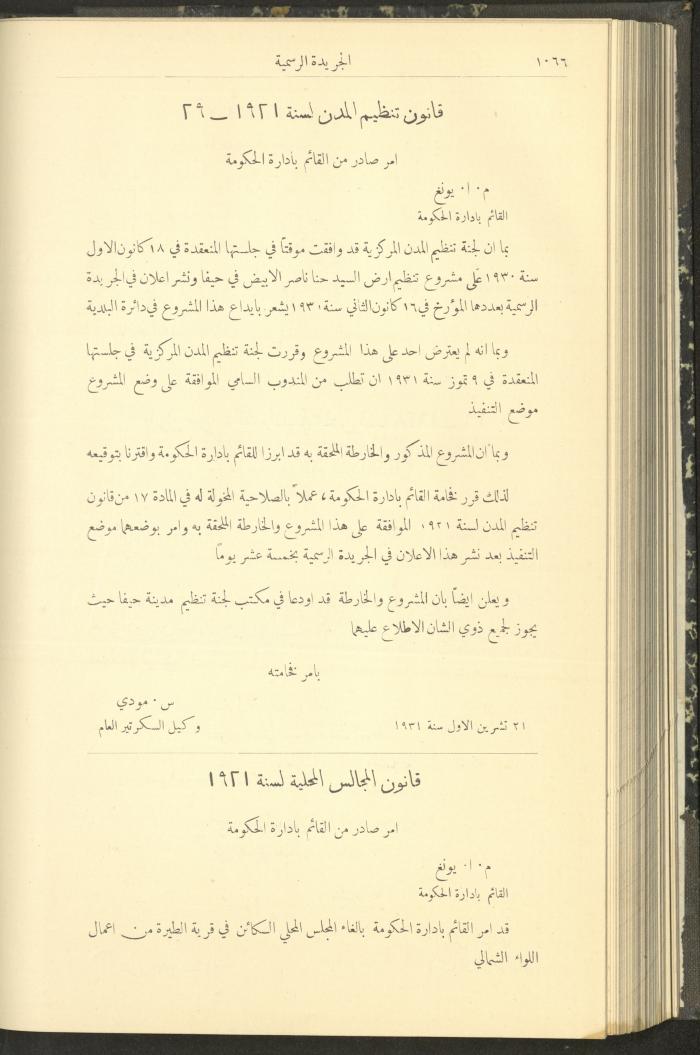 ١٠٦٦ الجريدة الرسمية
قانون تنظيم المدن لسنة ١٩٢١ ـ ٢٩
امر صادر من القائم بأدارة الحكومة
م٠ ا٠ يونغ
القائم بادارة الحكومة
بما ان لجنة تنظيم المدن المركزية قد وافقت موقتاً في جلستها المنعقدة في ١٨ كانون الاول
سنة ١٩٣٠ على مشروع تنظيم ارض السيد حنا ناصر الابيض في حيفا ونشر اعلان في الجريدة
الرسمية بعددها المؤرخ في ١٦ كانون الثاني سنة ١٩٣٠ يشعر بايداع هذا المشروع في دائرة البلدية
وبما انه لم يعترض احد على هذا المشروع وقررت لجنة تنظيم المدن المركزية في جلستها
المنعقدة في ٩ تموز سنة ١٩٣١ ان تطلب من المندوب السامي الموافقة على وضع المشروع
موضع التنفيذ
وبما ان المشروع المذكور والخارطة الملحقة به قد ابرزا للقائم بادارة الحكومة واقترنا بتوقيعه
لذلك قرر فخامة القائم بادارة الحكومة، عملاً بالصلاحية المخولة له في المادة ١٧ من قانون
تنظيم المدن لسنة ١٩٢١ الموافقة على هذا المشروع والخارطة الملحقة به وامر بوضعهما موضع
التنفيذ بعد نشر هذا الاعلان في الجريدة الرسمية بخمسة عشر يوماً
ويعلن ايضاً بان المشروع والخارطة قد اودعا في مكتب لجنة تنظيم مدينة حيفا حيث
يجوز لجميع ذوي الشان الاطلاع عليهما
بامر فخامته
س ٠ مودي
٢١ تشرين الاول سنة ١٩٣١ وكيل السكرتير العام
قانون المجالس المحلية لسنة ١٩٢١
امر صادر من القائم بادارة الحكومة
م٠ ا٠ يونغ
القائم بادارة الحكومة
قد امر القائم بادارة الحكومة بالغاء المجلس المحلي السكائن في قرية الطيرة من اعمال
اللواء الشمالي